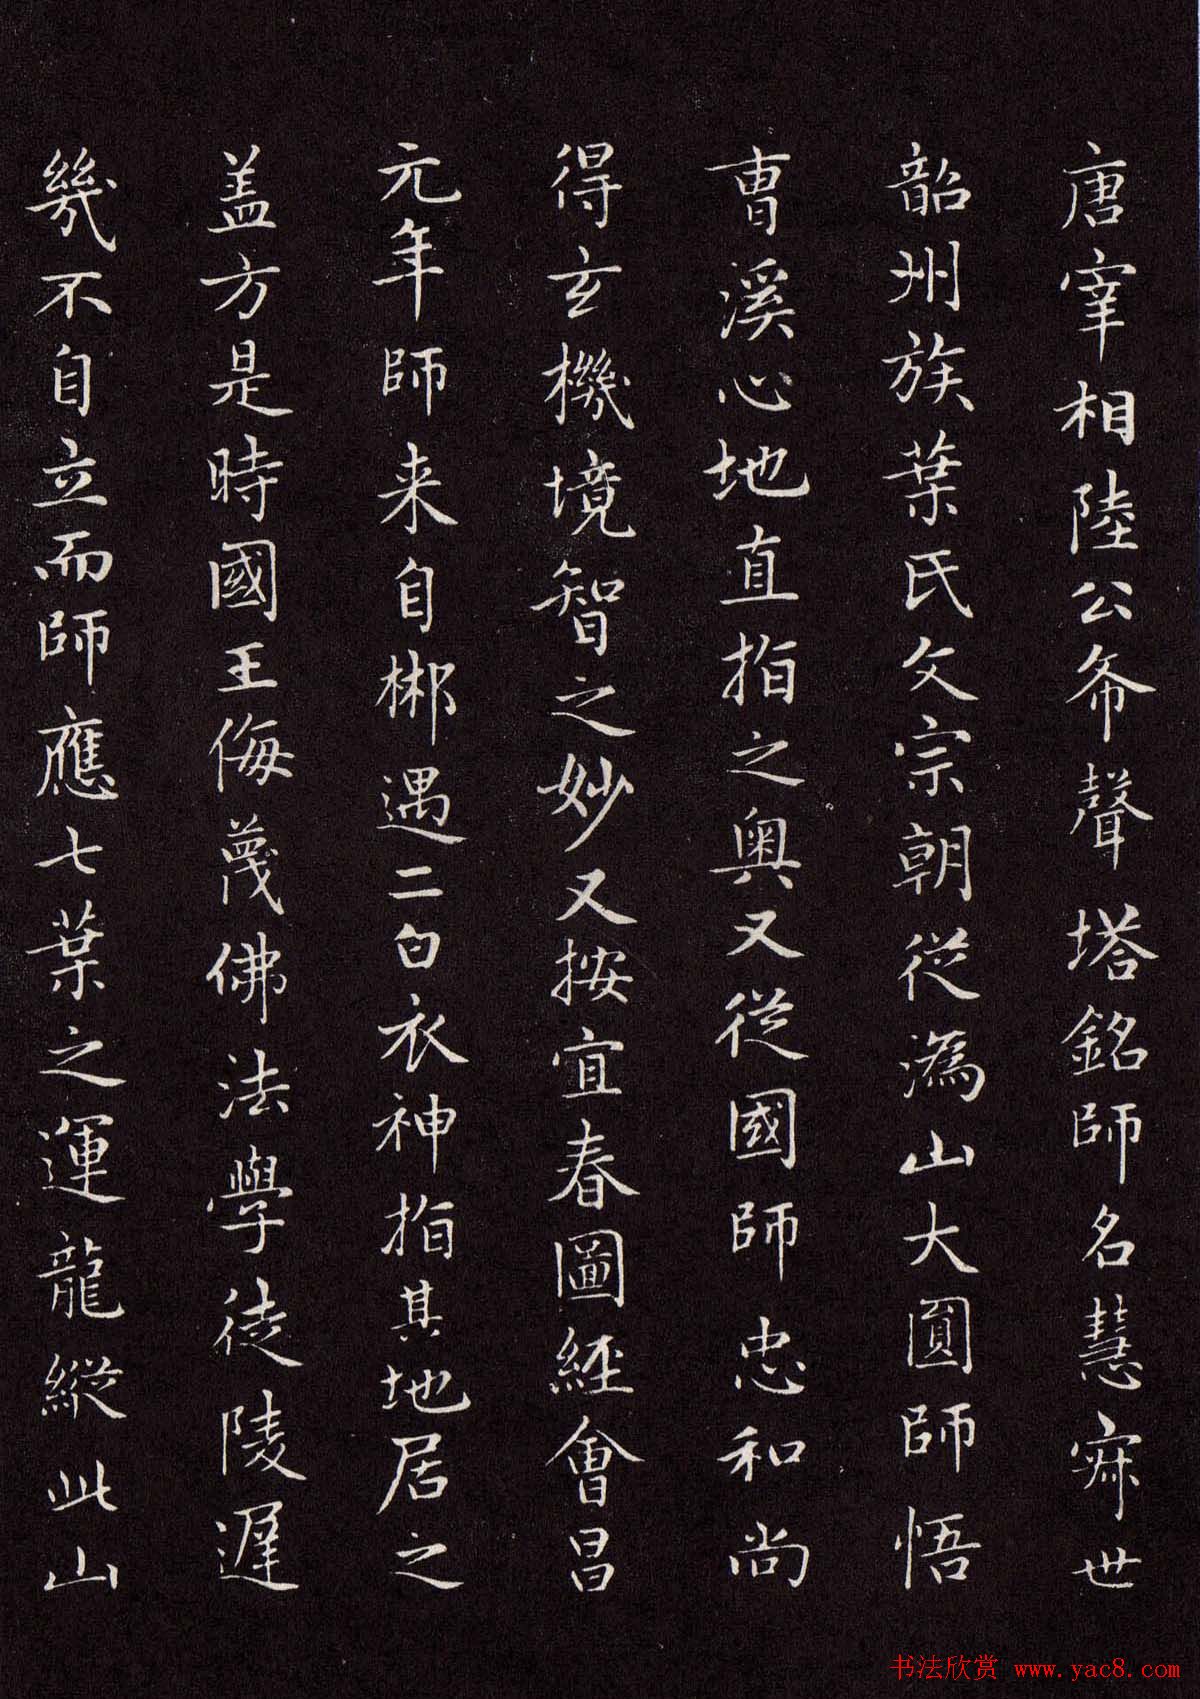 唐宰相陸公希聲塔銘師名慧寂世
韶州族葉氏文宗朝從溈山大圓師悟
曹溪心地直指之奧又從國師忠和尚
得玄機境智之妙又按宜春圖經會昌
元年師来自郴遇二白衣神指其地居之
盖方是時國王侮蔑佛法學徒陵遲
幾不自立而師應七葉之運龍縱此山
书法欣赏 www.yac8.com